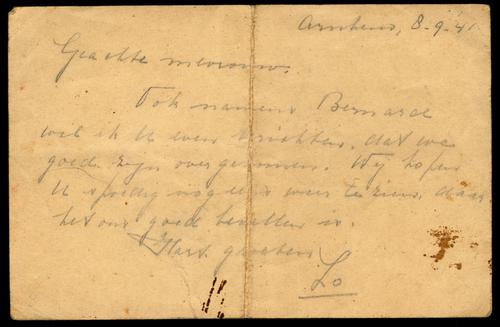 Arnhem, 8-9-41
Geachte mevrouw.
Ook namens Bernard
wil ik U even berichten, dat we
goed zijn overgekomen. Wij hopen
U spoedig nog eens weer te zien, daar
het ons goed bevallen is.
Hart. groeten
Lo